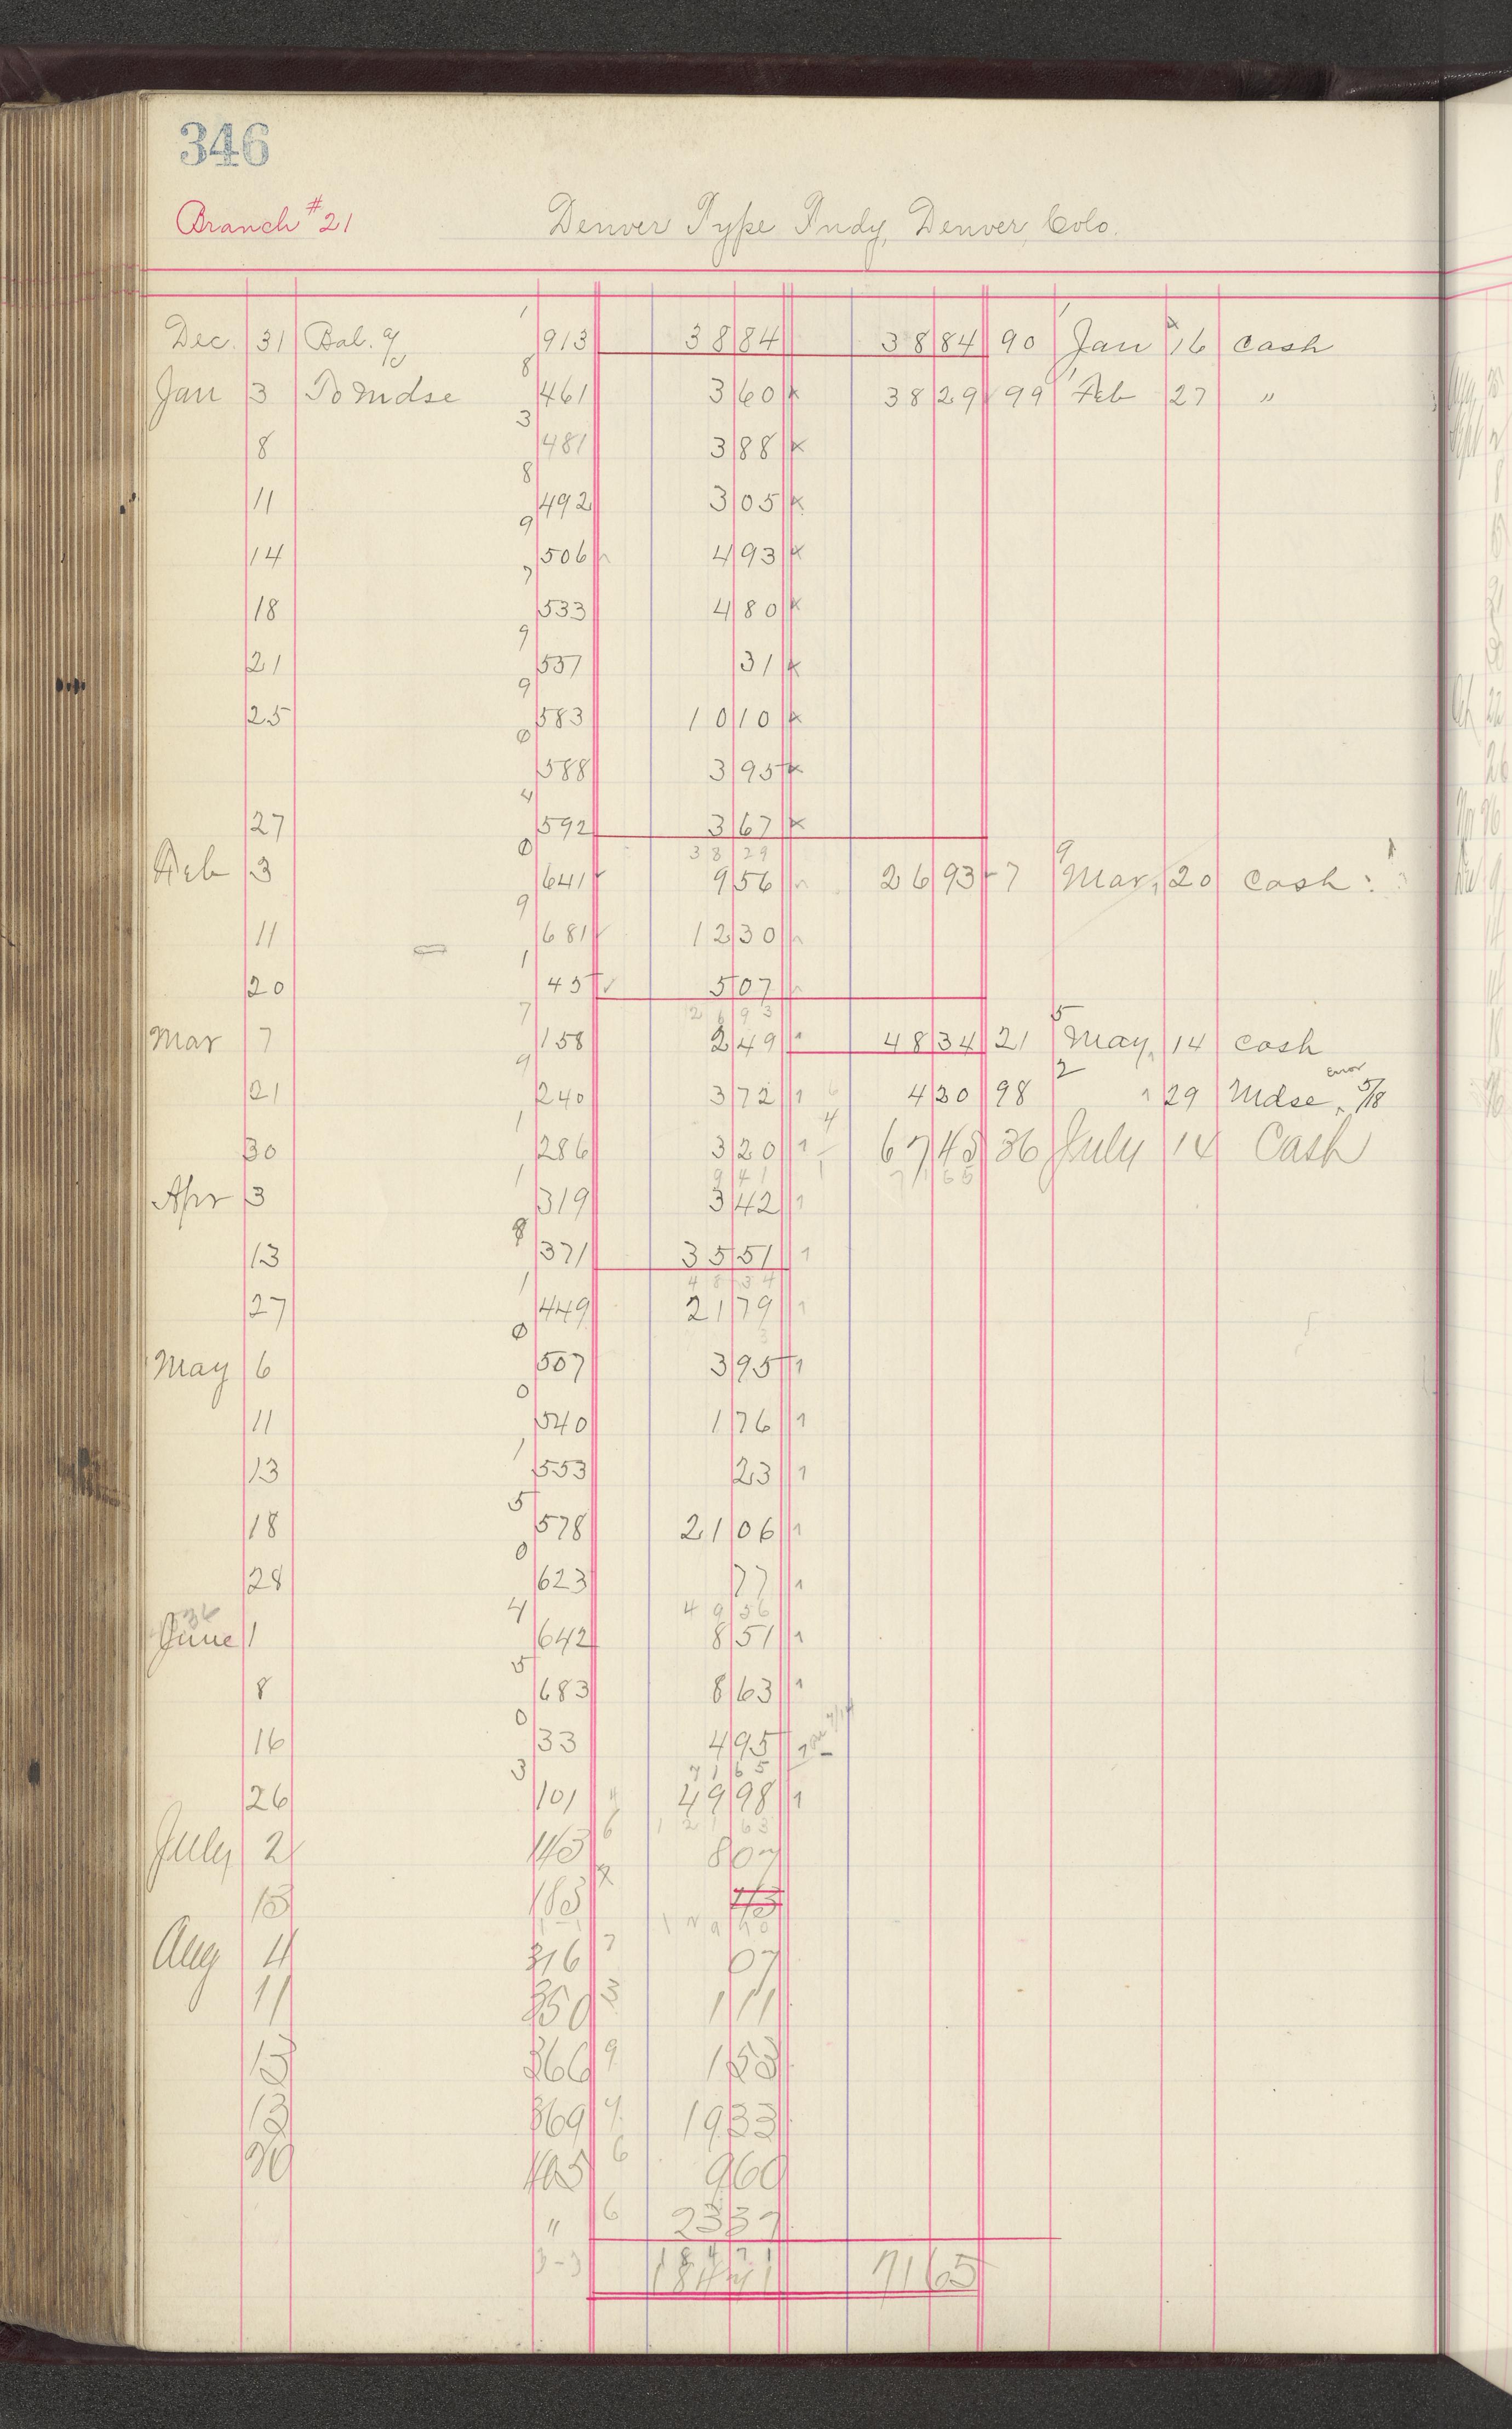 346
Branch #21 Denver Type Fndy, Denver, Colo.
Dec. 31 Bal. 913 38 84 38 84 90 Jan 16 Cash
Jan 3 To mdse 461 3 60 x 38 29 99 Feb 27 "
8 481 3 88 x
11 492 3 05 x
14 506 4 93 x
18 533 4 80 x
21 537 31 x
25 583 10 10 x
588 3 95 x
27 592 3 67 x
38 29
Feb 3 641 9 56 26 93 7 Mar. 20 Cash
11 681 12 30
20 45 5 07
26 93
Mar 7 158 2 49 48 34 21 May, 14 Cash
21 240 3 72 4 30 98 " 29 Mdse Error 5/18
30 286 3 20 67 45 36 July 14 Cash
9 41 71 65
Apr 3 319 3 42
13 371 35 51
48 34
27 449 21 79
May 6 507 3 95
11 540 1 76
13 553 23
18 578 21 06
28 623 77
49 56
June 1 642 8 51
8 683 8 63
16 33 4 95
71 65
26 101 49 98
121 63
July 2 143 8 07
15 185
Aug 4 316 07
11 350 1 11
13 366 1 53
13 369 19 33
20 405 9 60
" 23 37
184 71 71 65